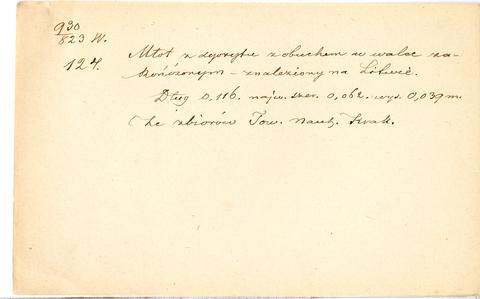 930
823 W.
124.
Młot z dyorytu z obuchem w walec za-
kończonym – znaleziony na Litwie.
Dług 0,116. najw. szer. 0,062. wys. 0,039 m.
Ze zbiorów Tow. nauk. Krak.